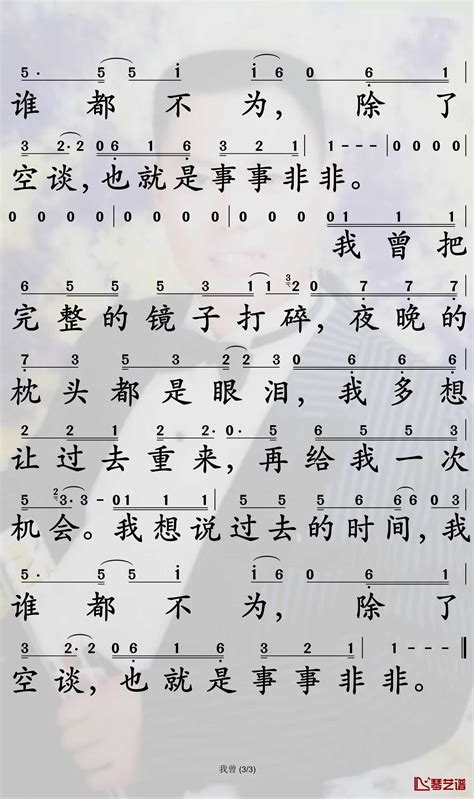 5· 5 5 i i 6 0 6 1
谁都不为，除了
3 2·2 0 6 1 6 3 2 2 1 1 - - - 0 0 0 0
空谈，也就是事事非非。
0 0 0 0 0 0 0 0 0 0 0 0 0 1 1 1
我曾把
6 5 5 5 3 1 1 3 2 0 7 7 7
完整的镜子打碎，夜晚的
7 3 5 5 3 2 2 3 0 6 6 6
枕头都是眼泪，我多想
2 2 1 2 2 2 0· 5 5 5 5 3
让过去重来，再给我一次
5 2 3·3 - 0 1 1 1 5 5 5 5 6 6 6 0 3
机会。我想说过去的时间，我
5· 5 5 i i 6 0 6 1
谁都不为，除了
3 2·2 0 6 1 6 3 2 2 1 1 - - -
空谈，也就是事事非非。
我曾 (3/3)
琴艺谱